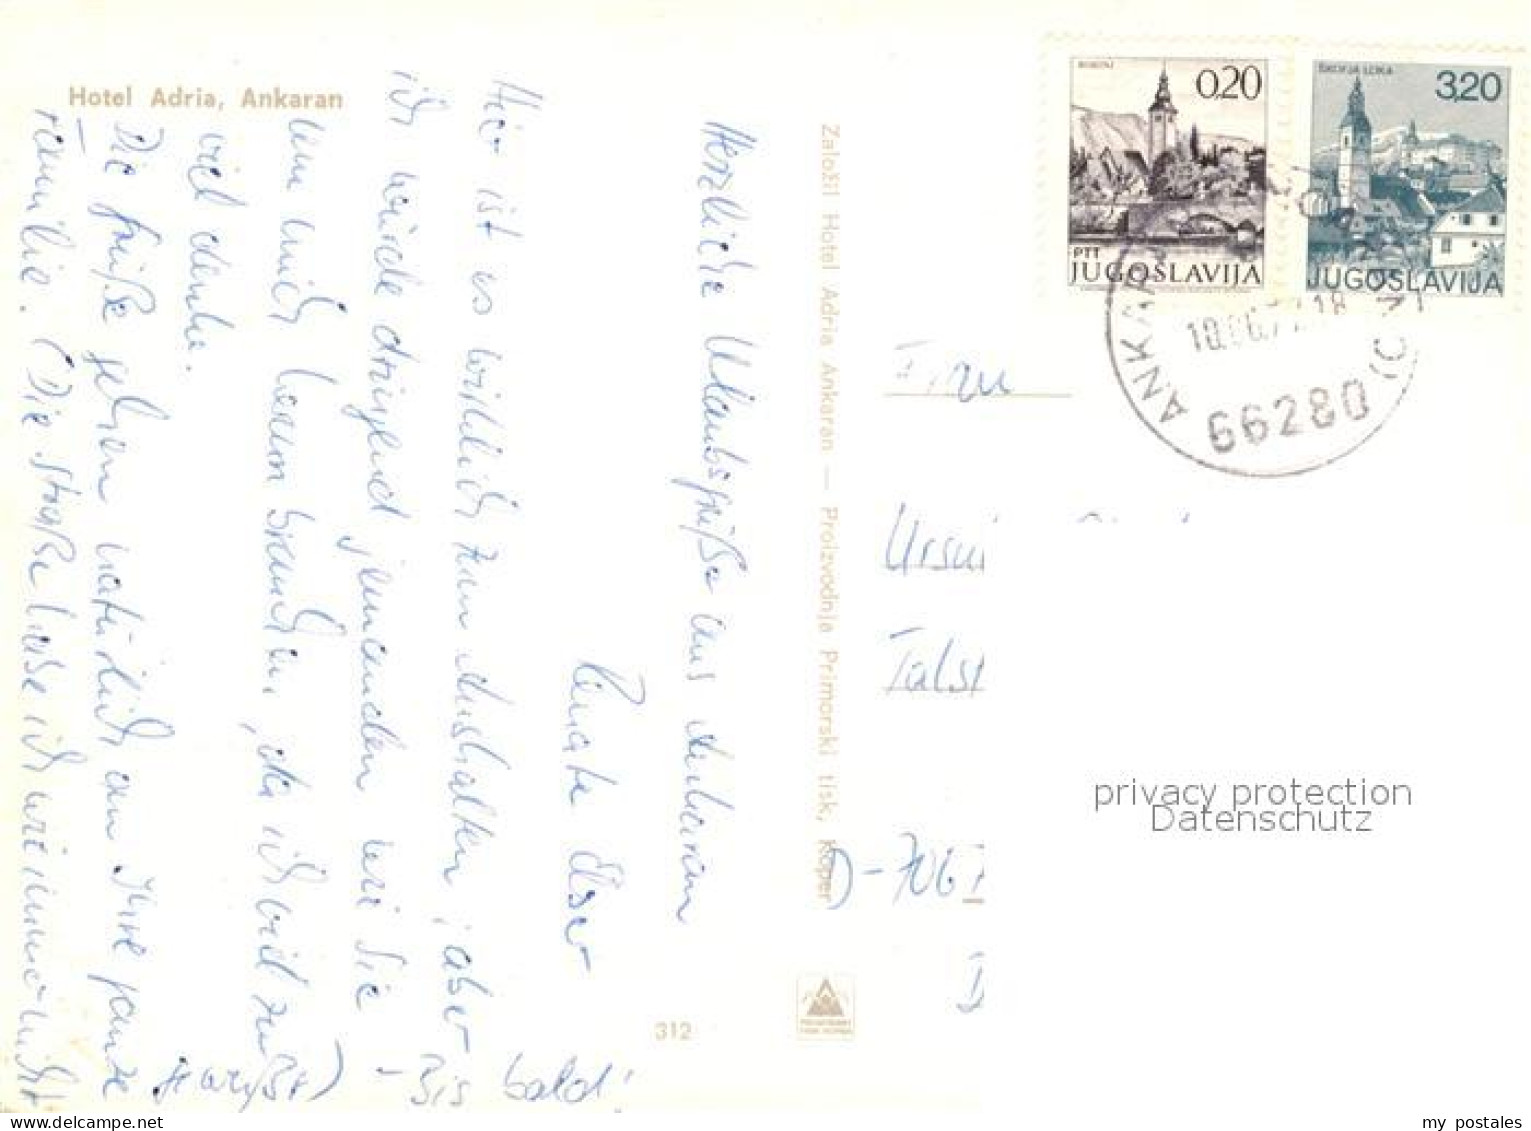 Hotel Adria, Ankaran
Herzliche Urlaubsgrüße aus Ankaran
Renate
Hier ist es wirklich zum Aushalten, aber
ich würde dringend jemanden wie Sie
um mich herum brauchen, da ich viel zu
viel denke.
Die Grüße gehen natürlich an Ihre ganze
Familie. (Die Straße habe ich wie immer nicht
gewußt) - Bis bald!
Založil Hotel Adria Ankaran — Proizvodnja Primorski tisk, Koper
312
BOHINJ
0,20
PTT
JUGOSLAVIJA
ŠKOFJA LOKA
3,20
JUGOSLAVIJA
ANKARAN
66280
Frau
D-706
privacy protection
Datenschutz
www.delcampe.net
my postales